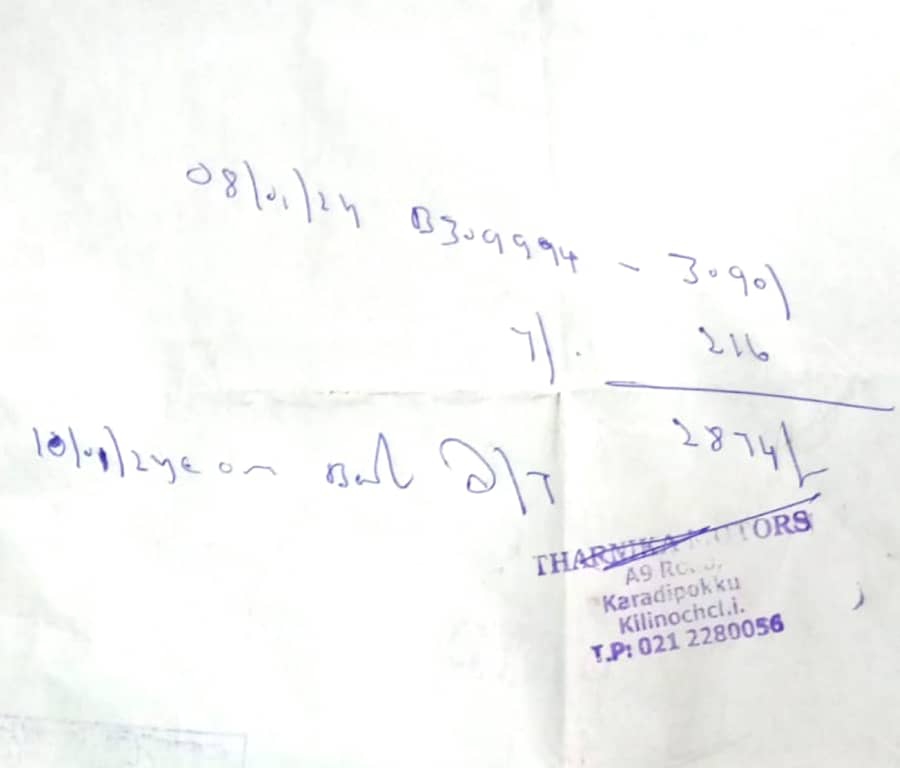 08/01/24 B309994 - 3090/
7/. 216
2874/-
10/01/24
THARNIKA MOTORS
A9 Ro
Karadipokku
Kilinochci.i.
T.P: 021 2280056